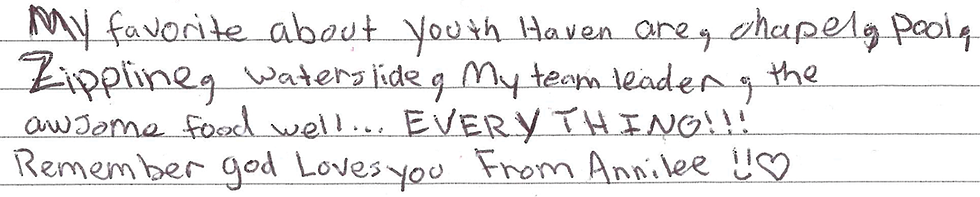 My favorite about Youth Haven are, chapel, Pool,
Zippline, waterslide, My team leader, the
awsome food well... EVERYTHING!!!
Remember god Loves you From Annilee !! ♡